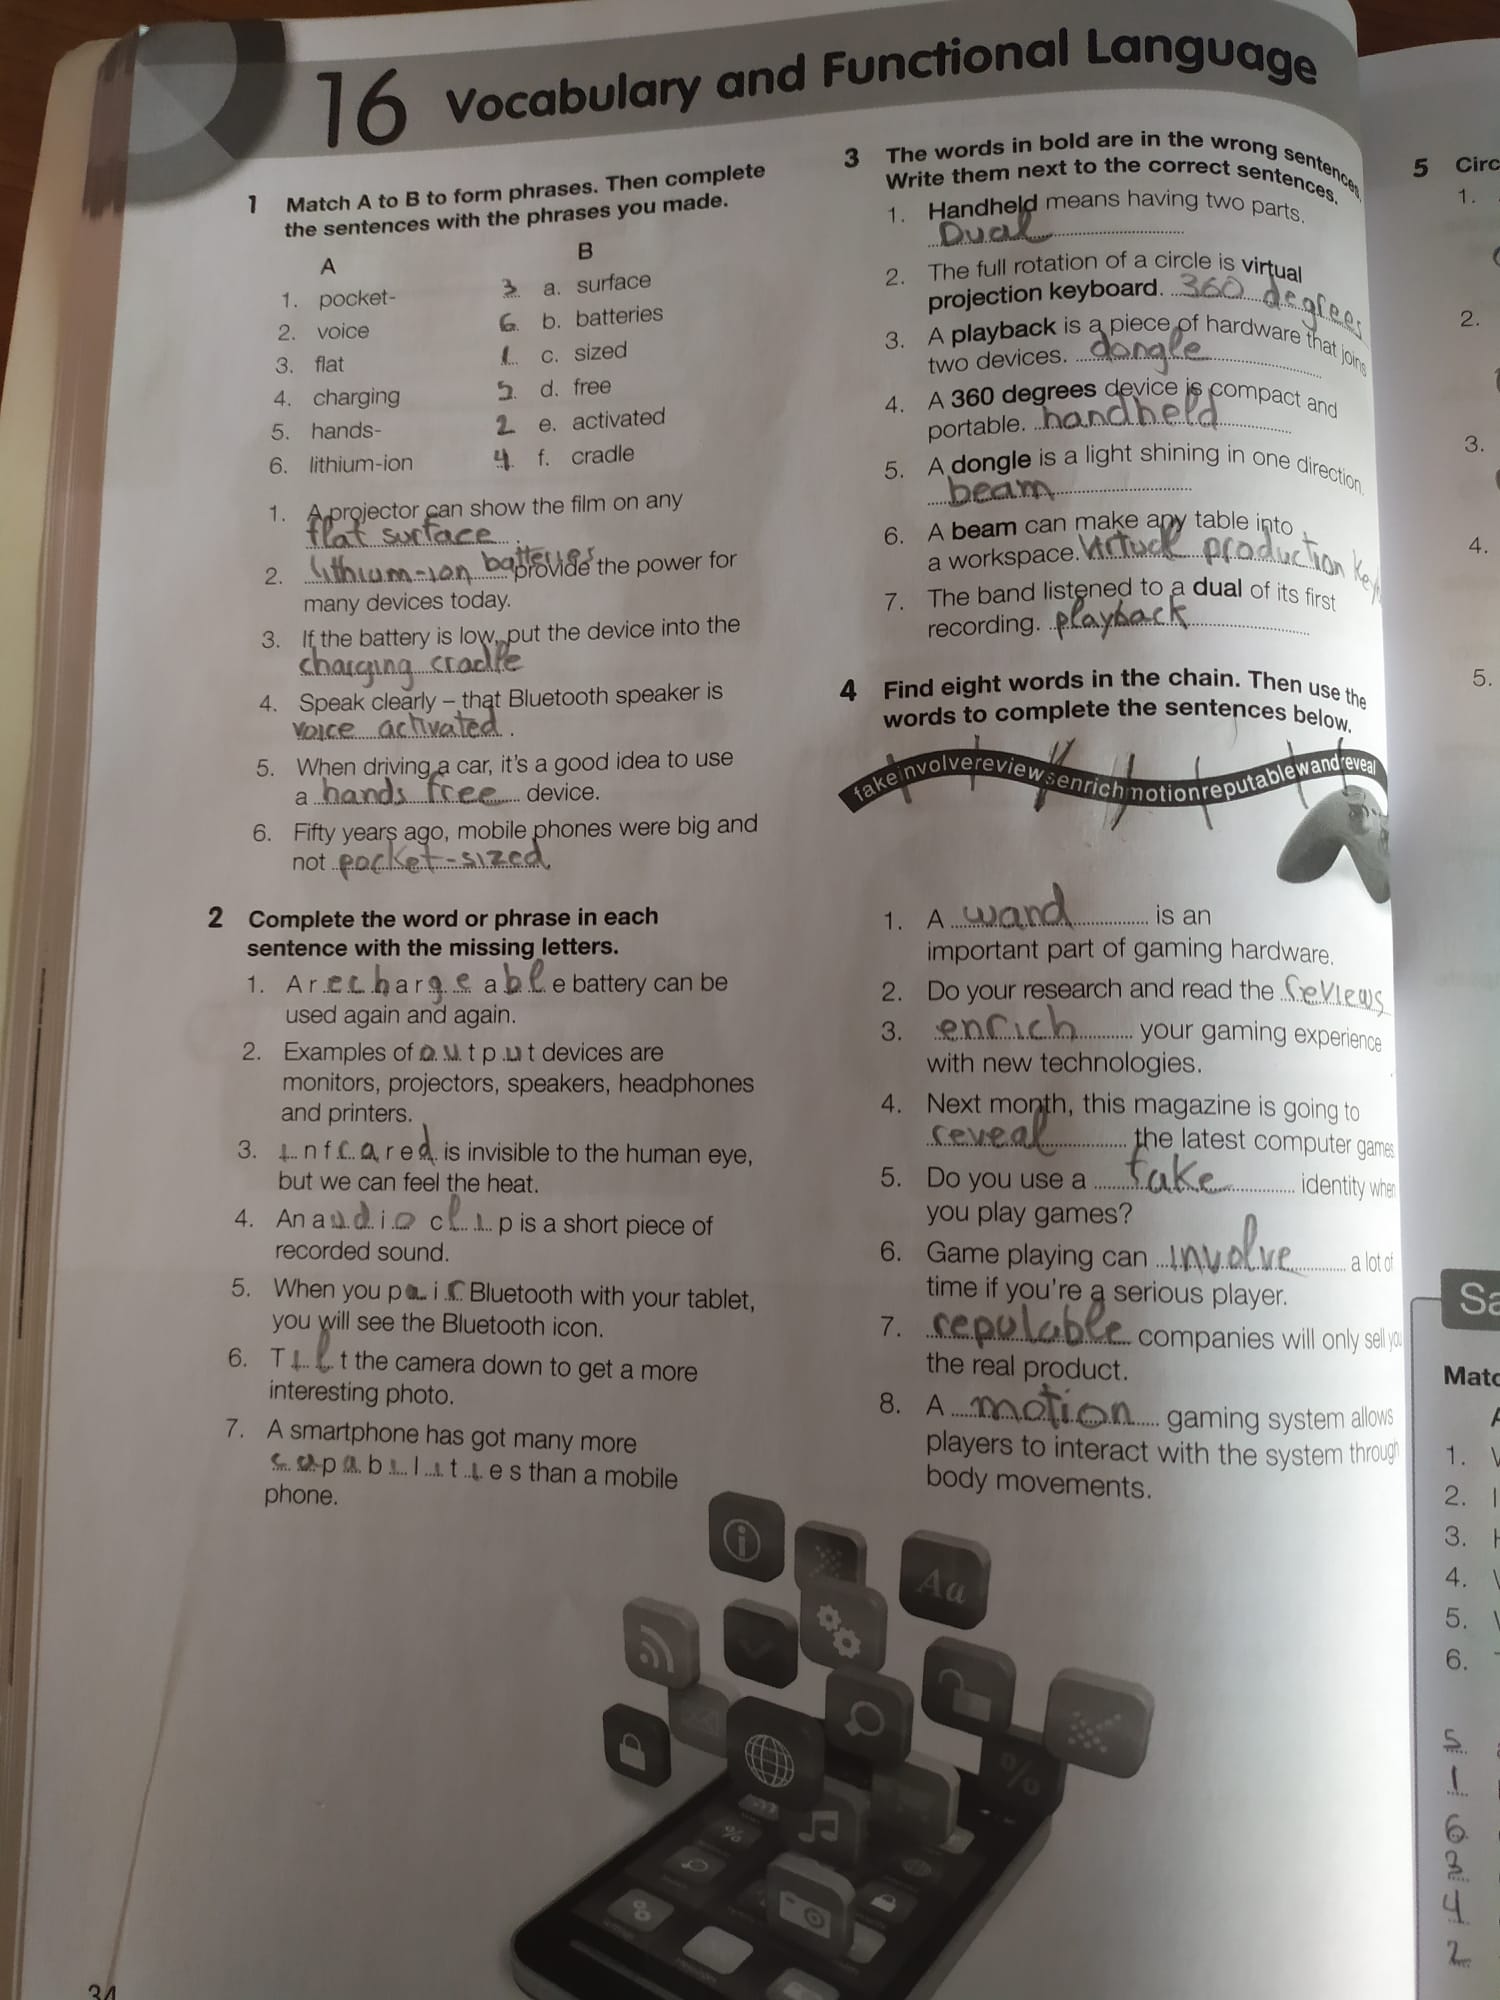 16 Vocabulary and Functional Language
1 Match A to B to form phrases. Then complete
the sentences with the phrases you made.
A B
1. pocket- 3 a. surface
2. voice 6 b. batteries
3. flat 1 c. sized
4. charging 5 d. free
5. hands- 2 e. activated
6. lithium-ion 4 f. cradle
1. A projector can show the film on any
flat surface.
2. lithium-ion batteries provide the power for
many devices today.
3. If the battery is low, put the device into the
charging cradle
4. Speak clearly – that Bluetooth speaker is
voice activated.
5. When driving a car, it's a good idea to use
a hands free device.
6. Fifty years ago, mobile phones were big and
not pocket-sized.
2 Complete the word or phrase in each
sentence with the missing letters.
1. A rechargeable battery can be
used again and again.
2. Examples of output devices are
monitors, projectors, speakers, headphones
and printers.
3. infrared is invisible to the human eye,
but we can feel the heat.
4. An audio clip is a short piece of
recorded sound.
5. When you pair Bluetooth with your tablet,
you will see the Bluetooth icon.
6. Tilt the camera down to get a more
interesting photo.
7. A smartphone has got many more
capabilities than a mobile
phone.
3 The words in bold are in the wrong sentences.
Write them next to the correct sentences.
1. Handheld means having two parts.
Dual
2. The full rotation of a circle is virtual
projection keyboard. 360 degrees
3. A playback is a piece of hardware that joins
two devices. dongle
4. A 360 degrees device is compact and
portable. handheld
5. A dongle is a light shining in one direction.
beam
6. A beam can make any table into
a workspace. Virtual production key
7. The band listened to a dual of its first
recording. playback
4 Find eight words in the chain. Then use the
words to complete the sentences below.
fakeinvolvereviewsenrichmotionreputablewandreveal
1. A wand is an
important part of gaming hardware.
2. Do your research and read the reviews
3. enrich your gaming experience
with new technologies.
4. Next month, this magazine is going to
reveal the latest computer games
5. Do you use a fake identity when
you play games?
6. Game playing can involve a lot of
time if you're a serious player.
7. reputable companies will only sell you
the real product.
8. A motion gaming system allows
players to interact with the system through
body movements.
Aa
%
34
5 Circ
1.
2.
3.
4.
5.
Sa
Matc
1.
2.
3.
4.
5.
6.
5
1
6
3
4
2